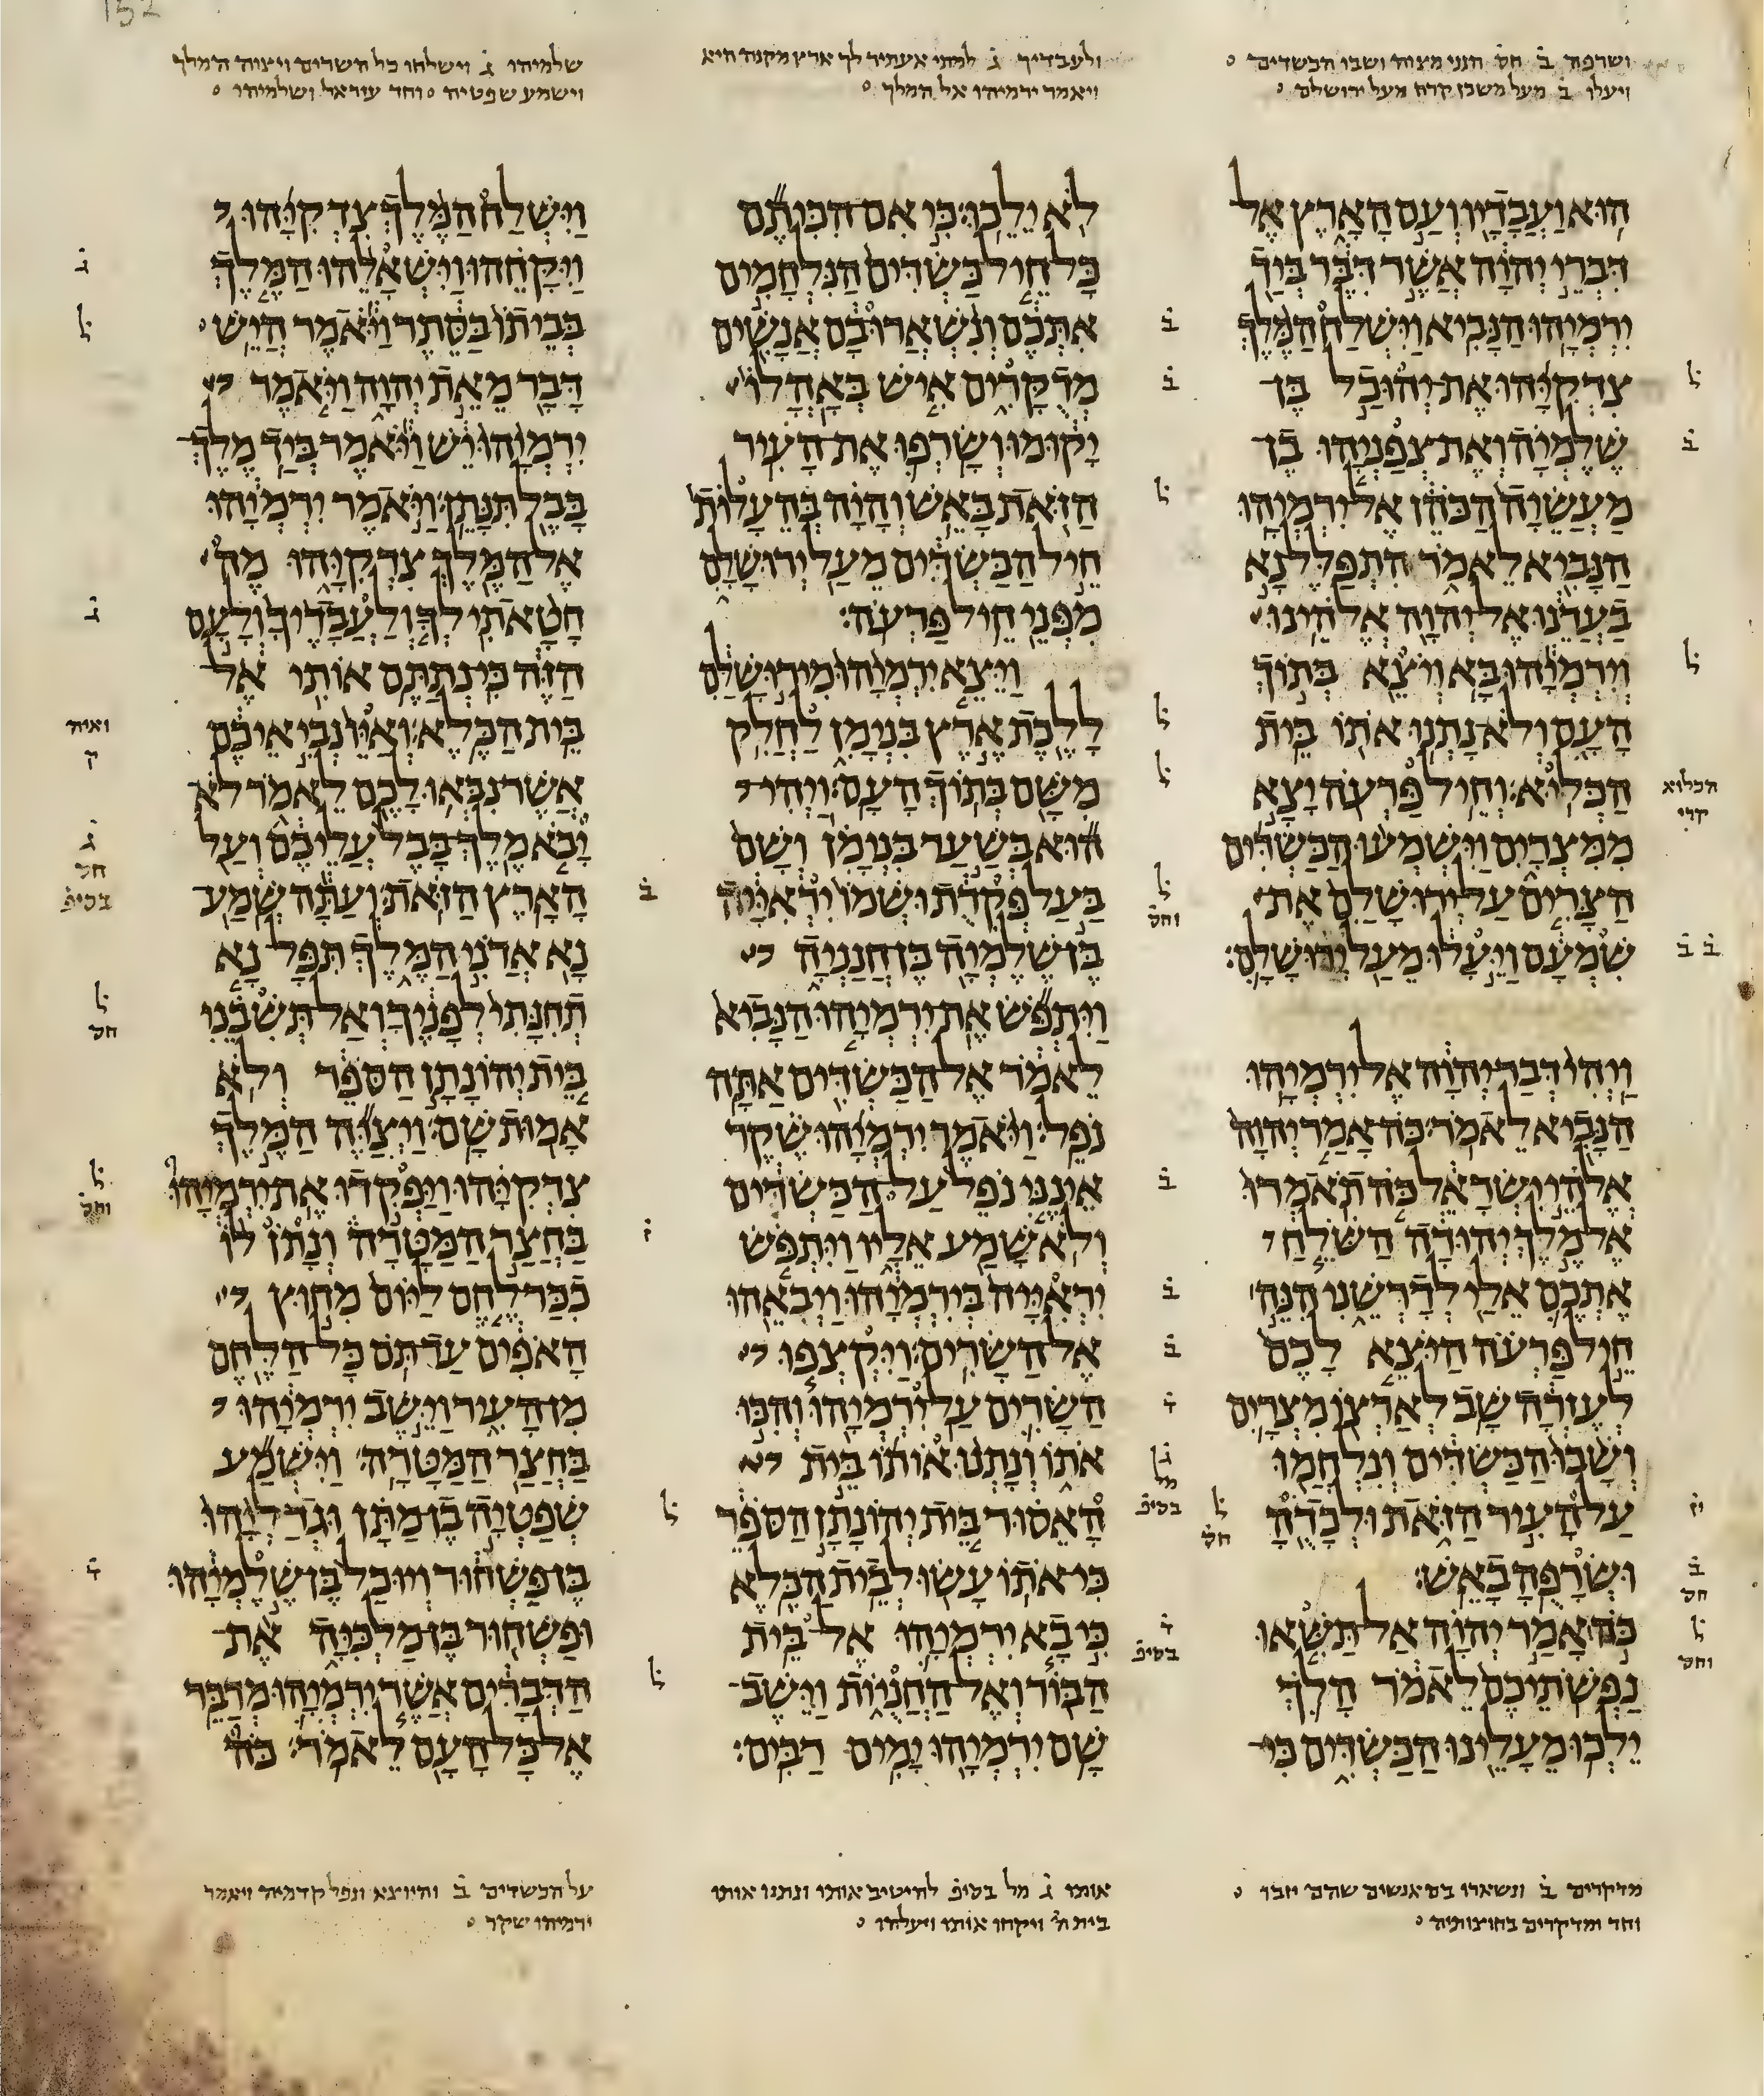 ושרפה ב חס הנני מצוה ושבו הכשדים
ויעלו ב מעל משכן קרח מעל ירושלם
ולעבדיך ג למתי אעתיר לך ארץ מקנה היא
ויאמר ירמיהו אל המלך
שלמיהו ג וישלחו כל השרים ויצוה המלך
וישמע שפטיה וחד עזראל ושלמיהו
הוא ועבדיו ועם הארץ אל
דברי יהוה אשר דבר ביד
ירמיהו הנביא׃ וישלח המלך
צדקיהו את יהוכל בן
שלמיה ואת צפניהו בן
מעשיה הכהן אל ירמיהו
הנביא לאמר התפלל נא
בעדנו אל יהוה אלהינו׃
וירמיהו בא ויצא בתוך
העם ולא נתנו אתו בית
הכליא׃ וחיל פרעה יצא
ממצרים וישמעו הכשדים
הצרים על ירושלם את
שמעם ויעלו מעל ירושלם׃
ויהי דבר יהוה אל ירמיהו
הנביא לאמר׃ כה אמר יהוה
אלהי ישראל כה תאמרו
אל מלך יהודה השלח
אתכם אלי לדרשני הנה
חיל פרעה היצא לכם
לעזרה שב לארצו מצרים
ושבו הכשדים ונלחמו
על העיר הזאת ולכדה
ושרפה באש׃
כה אמר יהוה אל תשאו
נפשתיכם לאמר הלך
ילכו מעלינו הכשדים כי
לא ילכו׃ כי אם הכיתם
כל חיל כשדים הנלחמים
אתכם ונשארו בם אנשים
מדקרים איש באהלו
יקומו ושרפו את העיר
הזאת באש׃ והיה בהעלות
חיל הכשדים מעל ירושלם
מפני חיל פרעה׃
ויצא ירמיהו מירושלם
ללכת ארץ בנימן לחלק
משם בתוך העם׃ ויהי
הוא בשער בנימן ושם
בעל פקדת ושמו יראייה
בן שלמיה בן חנניה
ויתפש את ירמיהו הנביא
לאמר אל הכשדים אתה
נפל׃ ויאמר ירמיהו שקר
אינני נפל על הכשדים
ולא שמע אליו ויתפש
יראייה בירמיהו ויבאהו
אל השרים׃ ויקצפו
השרים על ירמיהו והכו
אתו ונתנו אותו בית
האסור בית יהונתן הספר
כי אתו עשו לבית הכלא׃
כי בא ירמיהו אל בית
הבור ואל החניות וישב
שם ירמיהו ימים רבים׃
וישלח המלך צדקיהו
ויקחהו וישאלהו המלך
בביתו בסתר ויאמר היש
דבר מאת יהוה ויאמר
ירמיהו יש ויאמר ביד מלך
בבל תנתן׃ ויאמר ירמיהו
אל המלך צדקיהו מה
חטאתי לך ולעבדיך ולעם
הזה כי נתתם אותי אל
בית הכלא׃ ואיו נביאיכם
אשר נבאו לכם לאמר לא
יבא מלך בבל עליכם ועל
הארץ הזאת׃ ועתה שמע
נא אדני המלך תפל נא
תחנתי לפניך ואל תשבני
בית יהונתן הספר ולא
אמות שם׃ ויצוה המלך
צדקיהו ויפקדו את ירמיהו
בחצר המטרה ונתן לו
ככר לחם ליום מחוץ
האפים עד תם כל הלחם
מן העיר וישב ירמיהו
בחצר המטרה׃ וישמע
שפטיה בן מתן וגדליהו
בן פשחור ויוכל בן שלמיהו
ופשחור בן מלכיה את
הדברים אשר ירמיהו מדבר
אל כל העם לאמר׃ כה
הכלוא
קרי
ואיה
ק
מדקרים ב ונשארו בם אנשים
וחד ומדקרים בחוצותיה
אותו ג מל בסיפ להיטיב אותו ונתנו אותו
בית ה ויקחו אותו ויעלהו
על הכשדים ב והיוצא ונפל קדמיה ויאמר
ירמיהו שקר